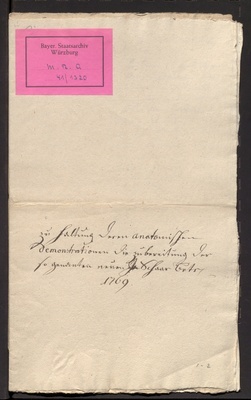 Bayer. Staatsarchiv
Würzburg
M. R. A
zu Haltung deren anatomischen
Demonstrationen die zubereitung der
so genanten neuen
1769
1-2